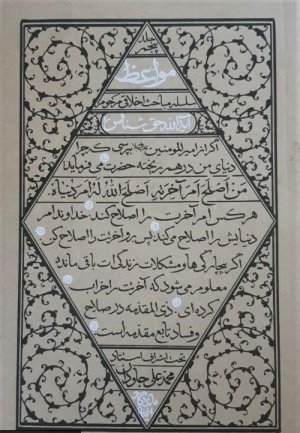 جلد پنجم
مواعظ
سلسله مباحث اخلاقی مرحوم
آیة الله حق شناس
اگر از امیرالمومنین بپرسی که چرا
دنیای من در هم ریخته حضرت می فرماید
مَن اَصلَحَ اَمرَ آخِرَتِهِ اَصلَحَ اللهُ لَهُ اَمرَ دُنیاهُ
هر کس امر آخرت را اصلاح کند خداوند امر
دنیایش را اصلاح می کند پس برو آخرتت را اصلاح کن
اگر بیچارگی ها و مشکلات زندگی ات باقی مانده
معلوم می شود که آخرتت را خراب
کرده ای ذی المقدمه در صلاح
و فساد تابع مقدمه است
تحت اشراف استاد
محمد علی جاودان